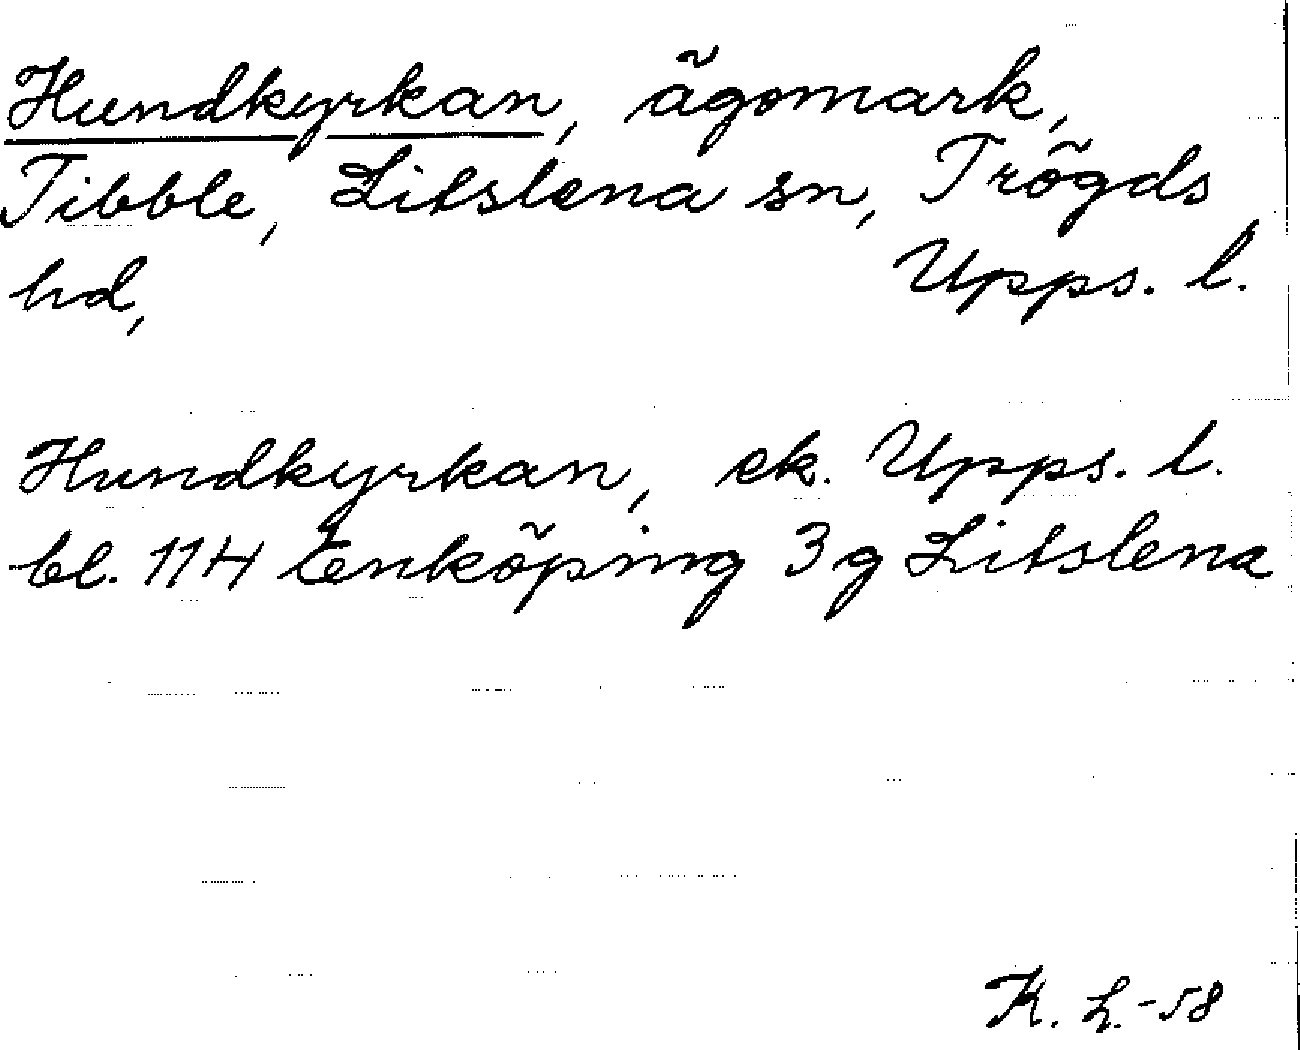 Hundkyrkan, ägomark,
Tibble, Litslena sn, Trögds
hd, Upps. l.
Hundkyrkan, ek. Upps. l.
bl. 114 Enköping 3g Litslena
K. L.-58